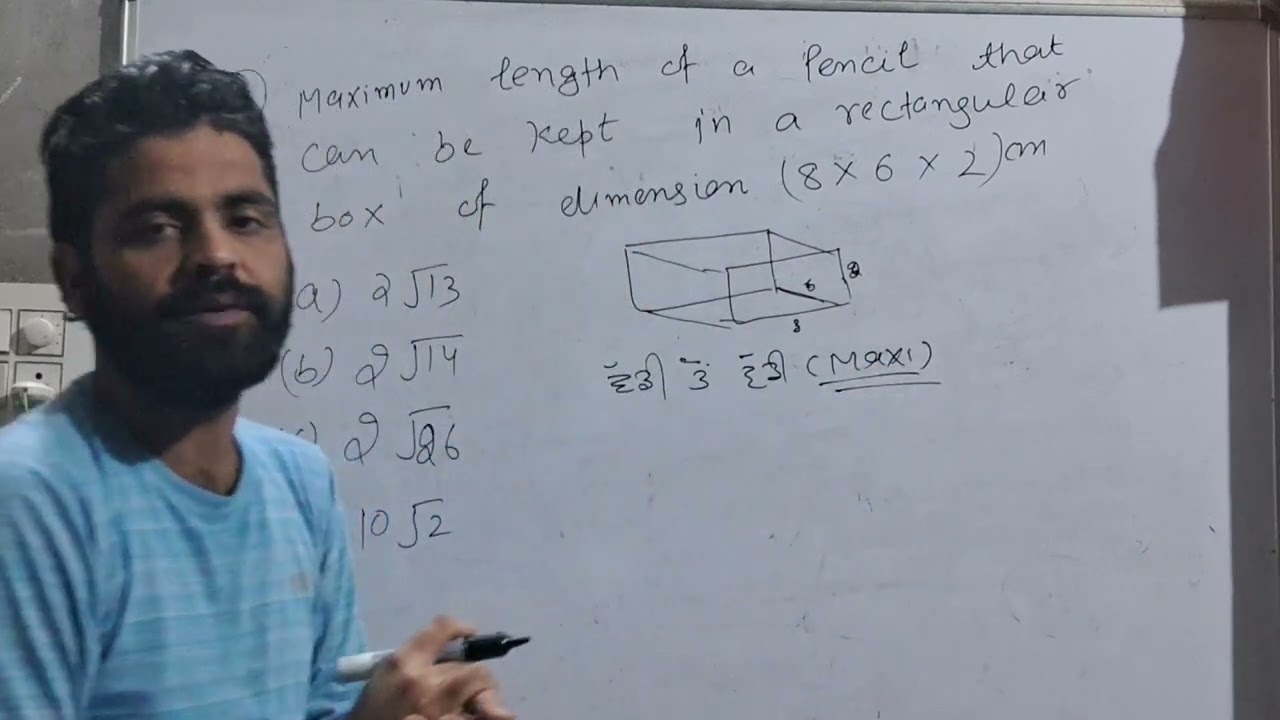 Maximum length of a Pencil that
can be kept in a rectangular
box of dimension (8 × 6 × 2) cm
a) 2√13
(b) 2√14
c) 2√26
10√2
2
6
8
ਵੱਡੀ ਤੋਂ ਵੱਡੀ (Maxi)